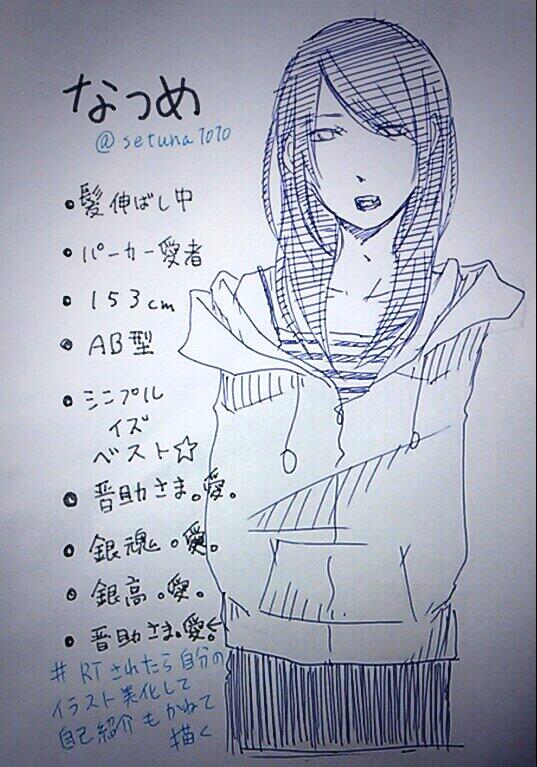 なつめ
@setuna7070
• 髪伸ばし中
• パーカー愛者
• 153cm
• AB型
• シンプル
イズ
ベスト☆
• 晋助さま。愛。
• 銀魂。愛。
• 銀高。愛。
• 晋助さま。愛。←
# RTされたら自分の
イラスト美化して
自己紹介もかねて
描く